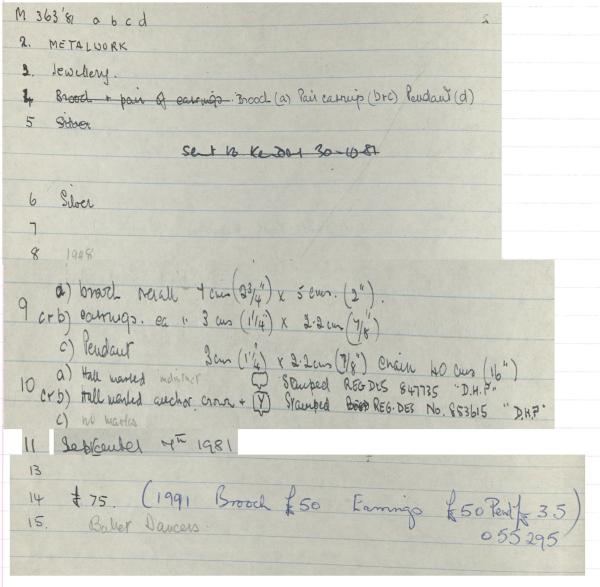 M 363'81 a b c d
2. METALWORK
3. Jewellery.
4 Brooch + pair of earrings. Brooch (a) Pair earrings (b+c) Pendant (d)
5 Silver
Sent to 30-10-81
6 Silver
7
8 1948
a) brooch overall 7 cms (2 3/4") x 5 cms. (2").
9 c+b) earrings. ea " 3 cms (1 1/4") x 2.2 cms (7/8")
c) Pendant 3cms (1 1/4") x 2.2cms (7/8") Chain 40 cms (16")
10 a) Hall marked indistinct Stamped REG DES 847735 "D.H.P"
c+b) Hall marked anchor, crown + Y Stamped REG.DES No. 853615 "D.H.P"
c) no marks
11 September 7TH 1981
13
14 £75. (1991 Brooch £50 Earrings £50 Pend £35)
055295
15. Ballet Dancers.